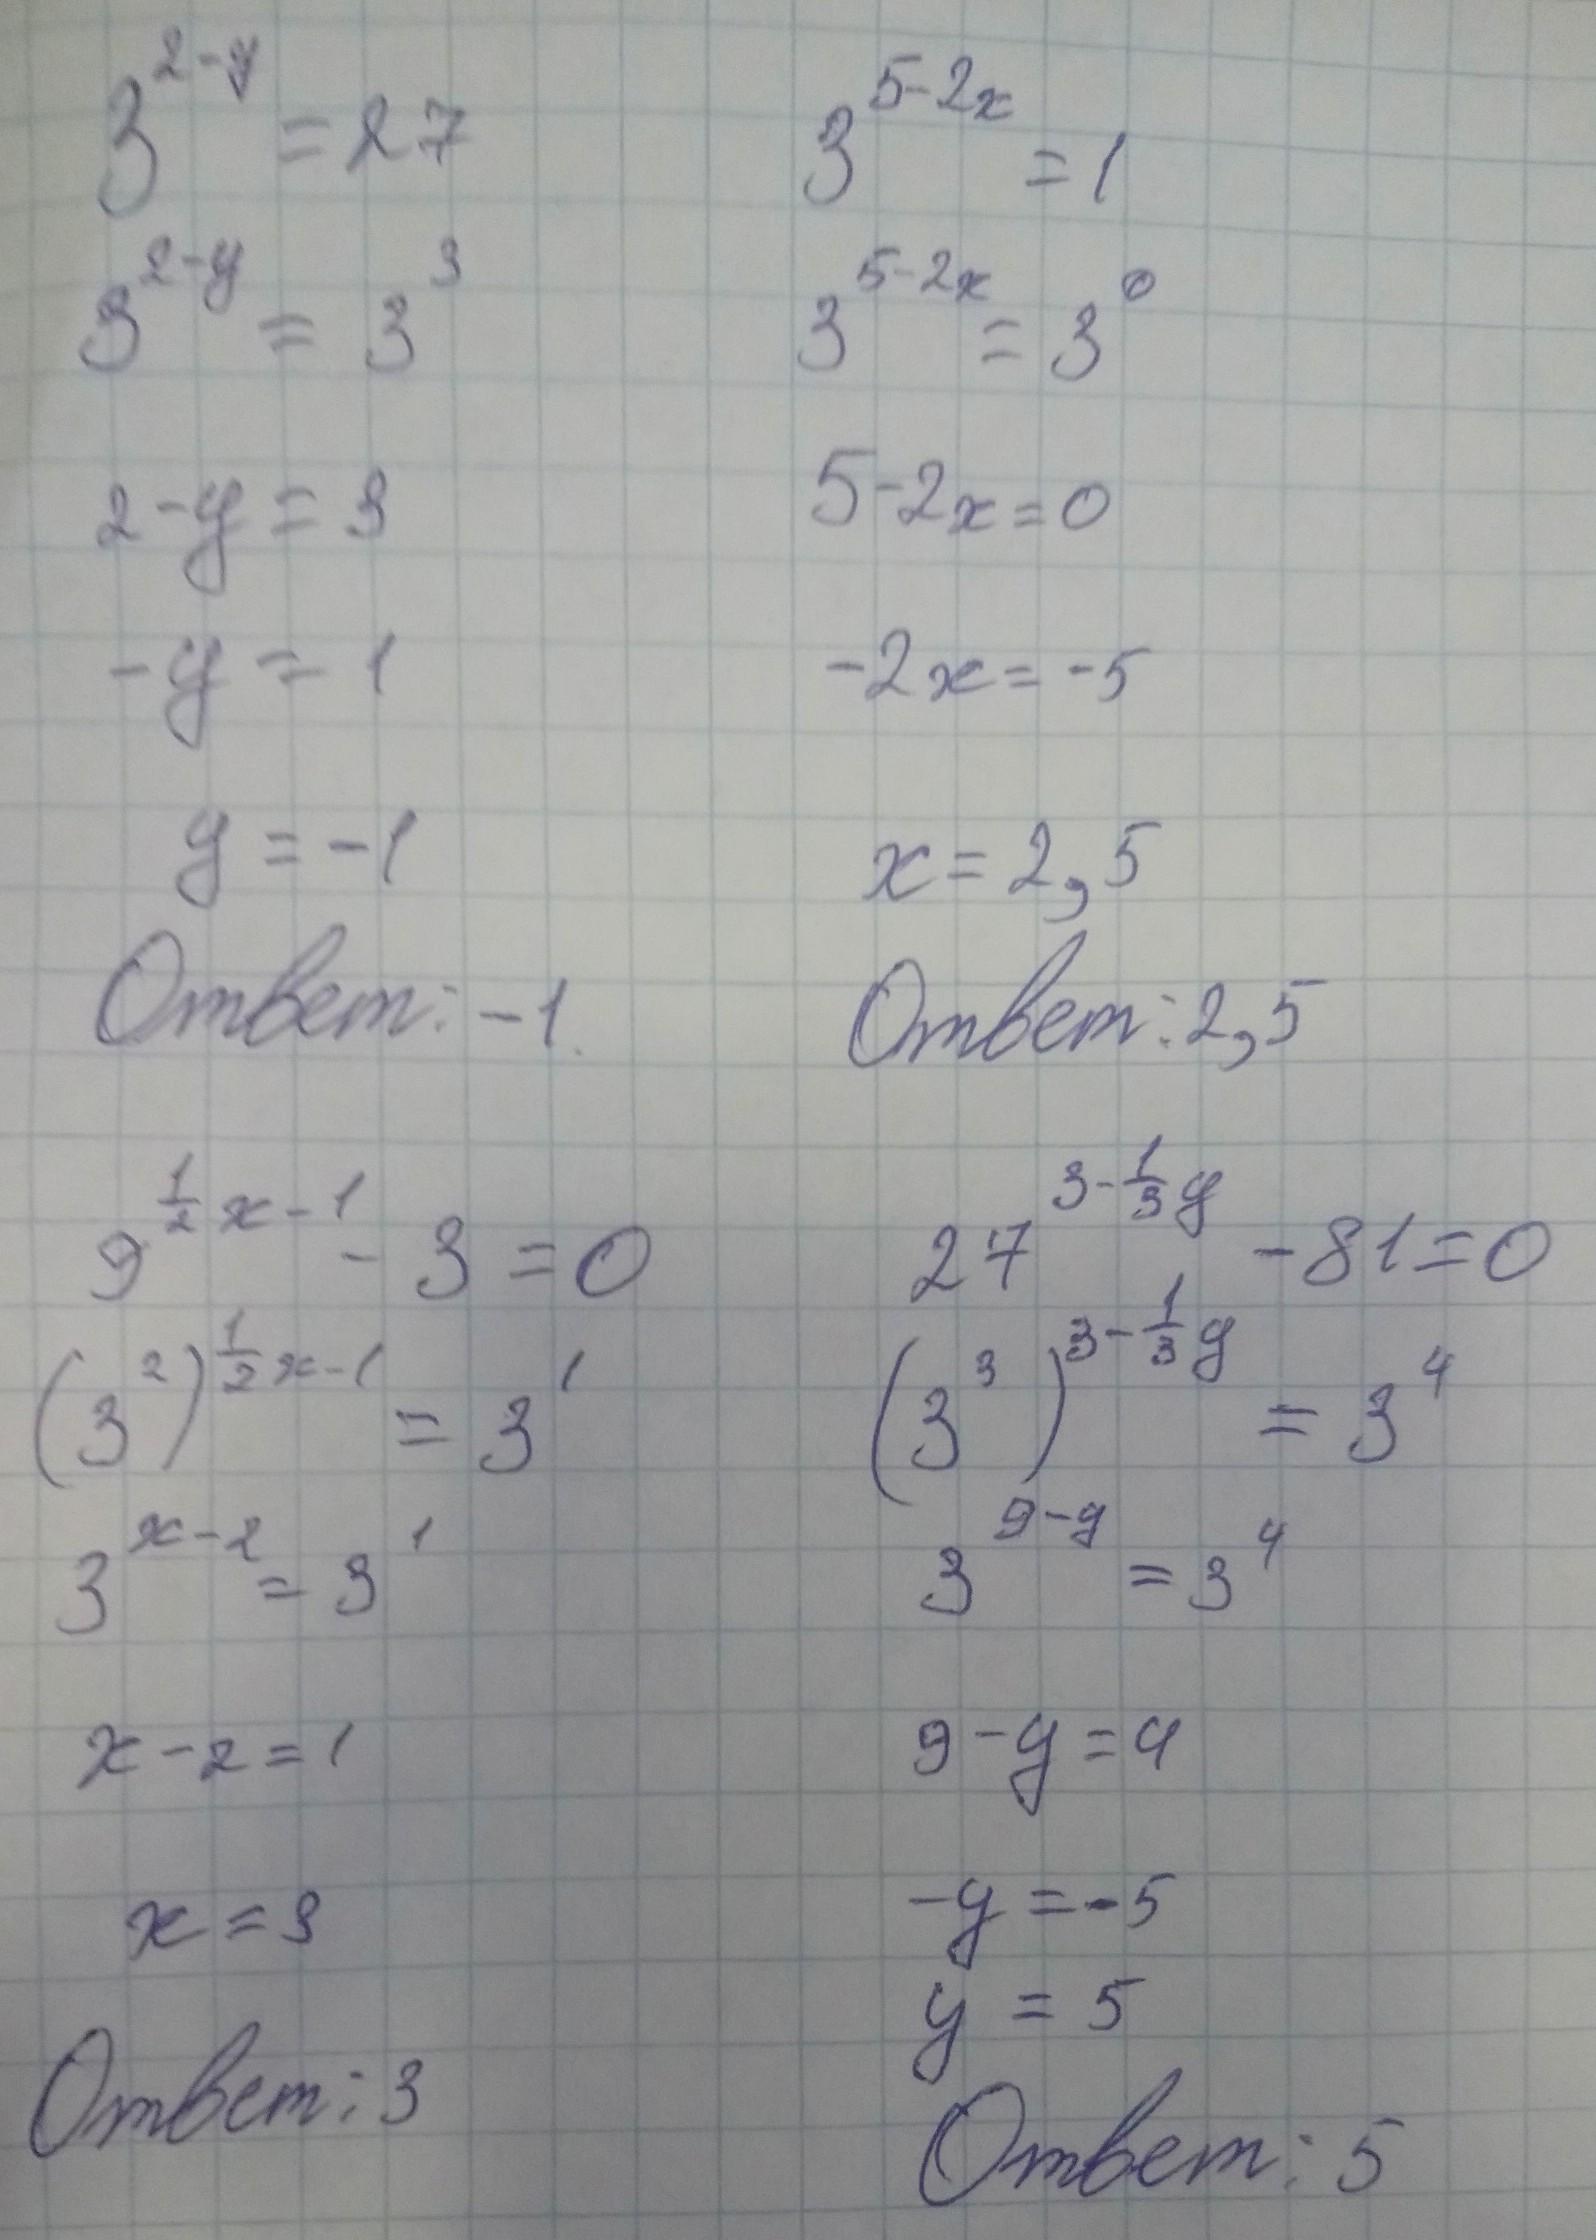 3^{2-y} = 27
3^{2-y} = 3^3
2-y = 3
-y = 1
y = -1
Ответ: -1.
3^{5-2x} = 1
3^{5-2x} = 3^0
5-2x=0
-2x=-5
x=2,5
Ответ: 2,5
9^{\frac{1}{2}x-1} - 3 = 0
(3^2)^{\frac{1}{2}x-1} = 3^1
3^{x-2} = 3^1
x-2=1
x=3
Ответ: 3
27^{3-\frac{1}{3}y} - 81 = 0
(3^3)^{3-\frac{1}{3}y} = 3^4
3^{9-y} = 3^4
9-y=4
-y=-5
y = 5
Ответ: 5